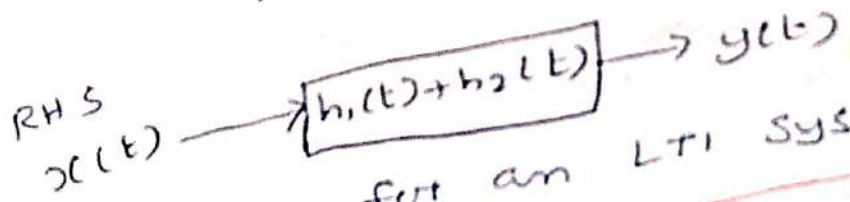 RHS
x(t) → h₁(t)+h₂(t) → y(t)
for an LTI sys